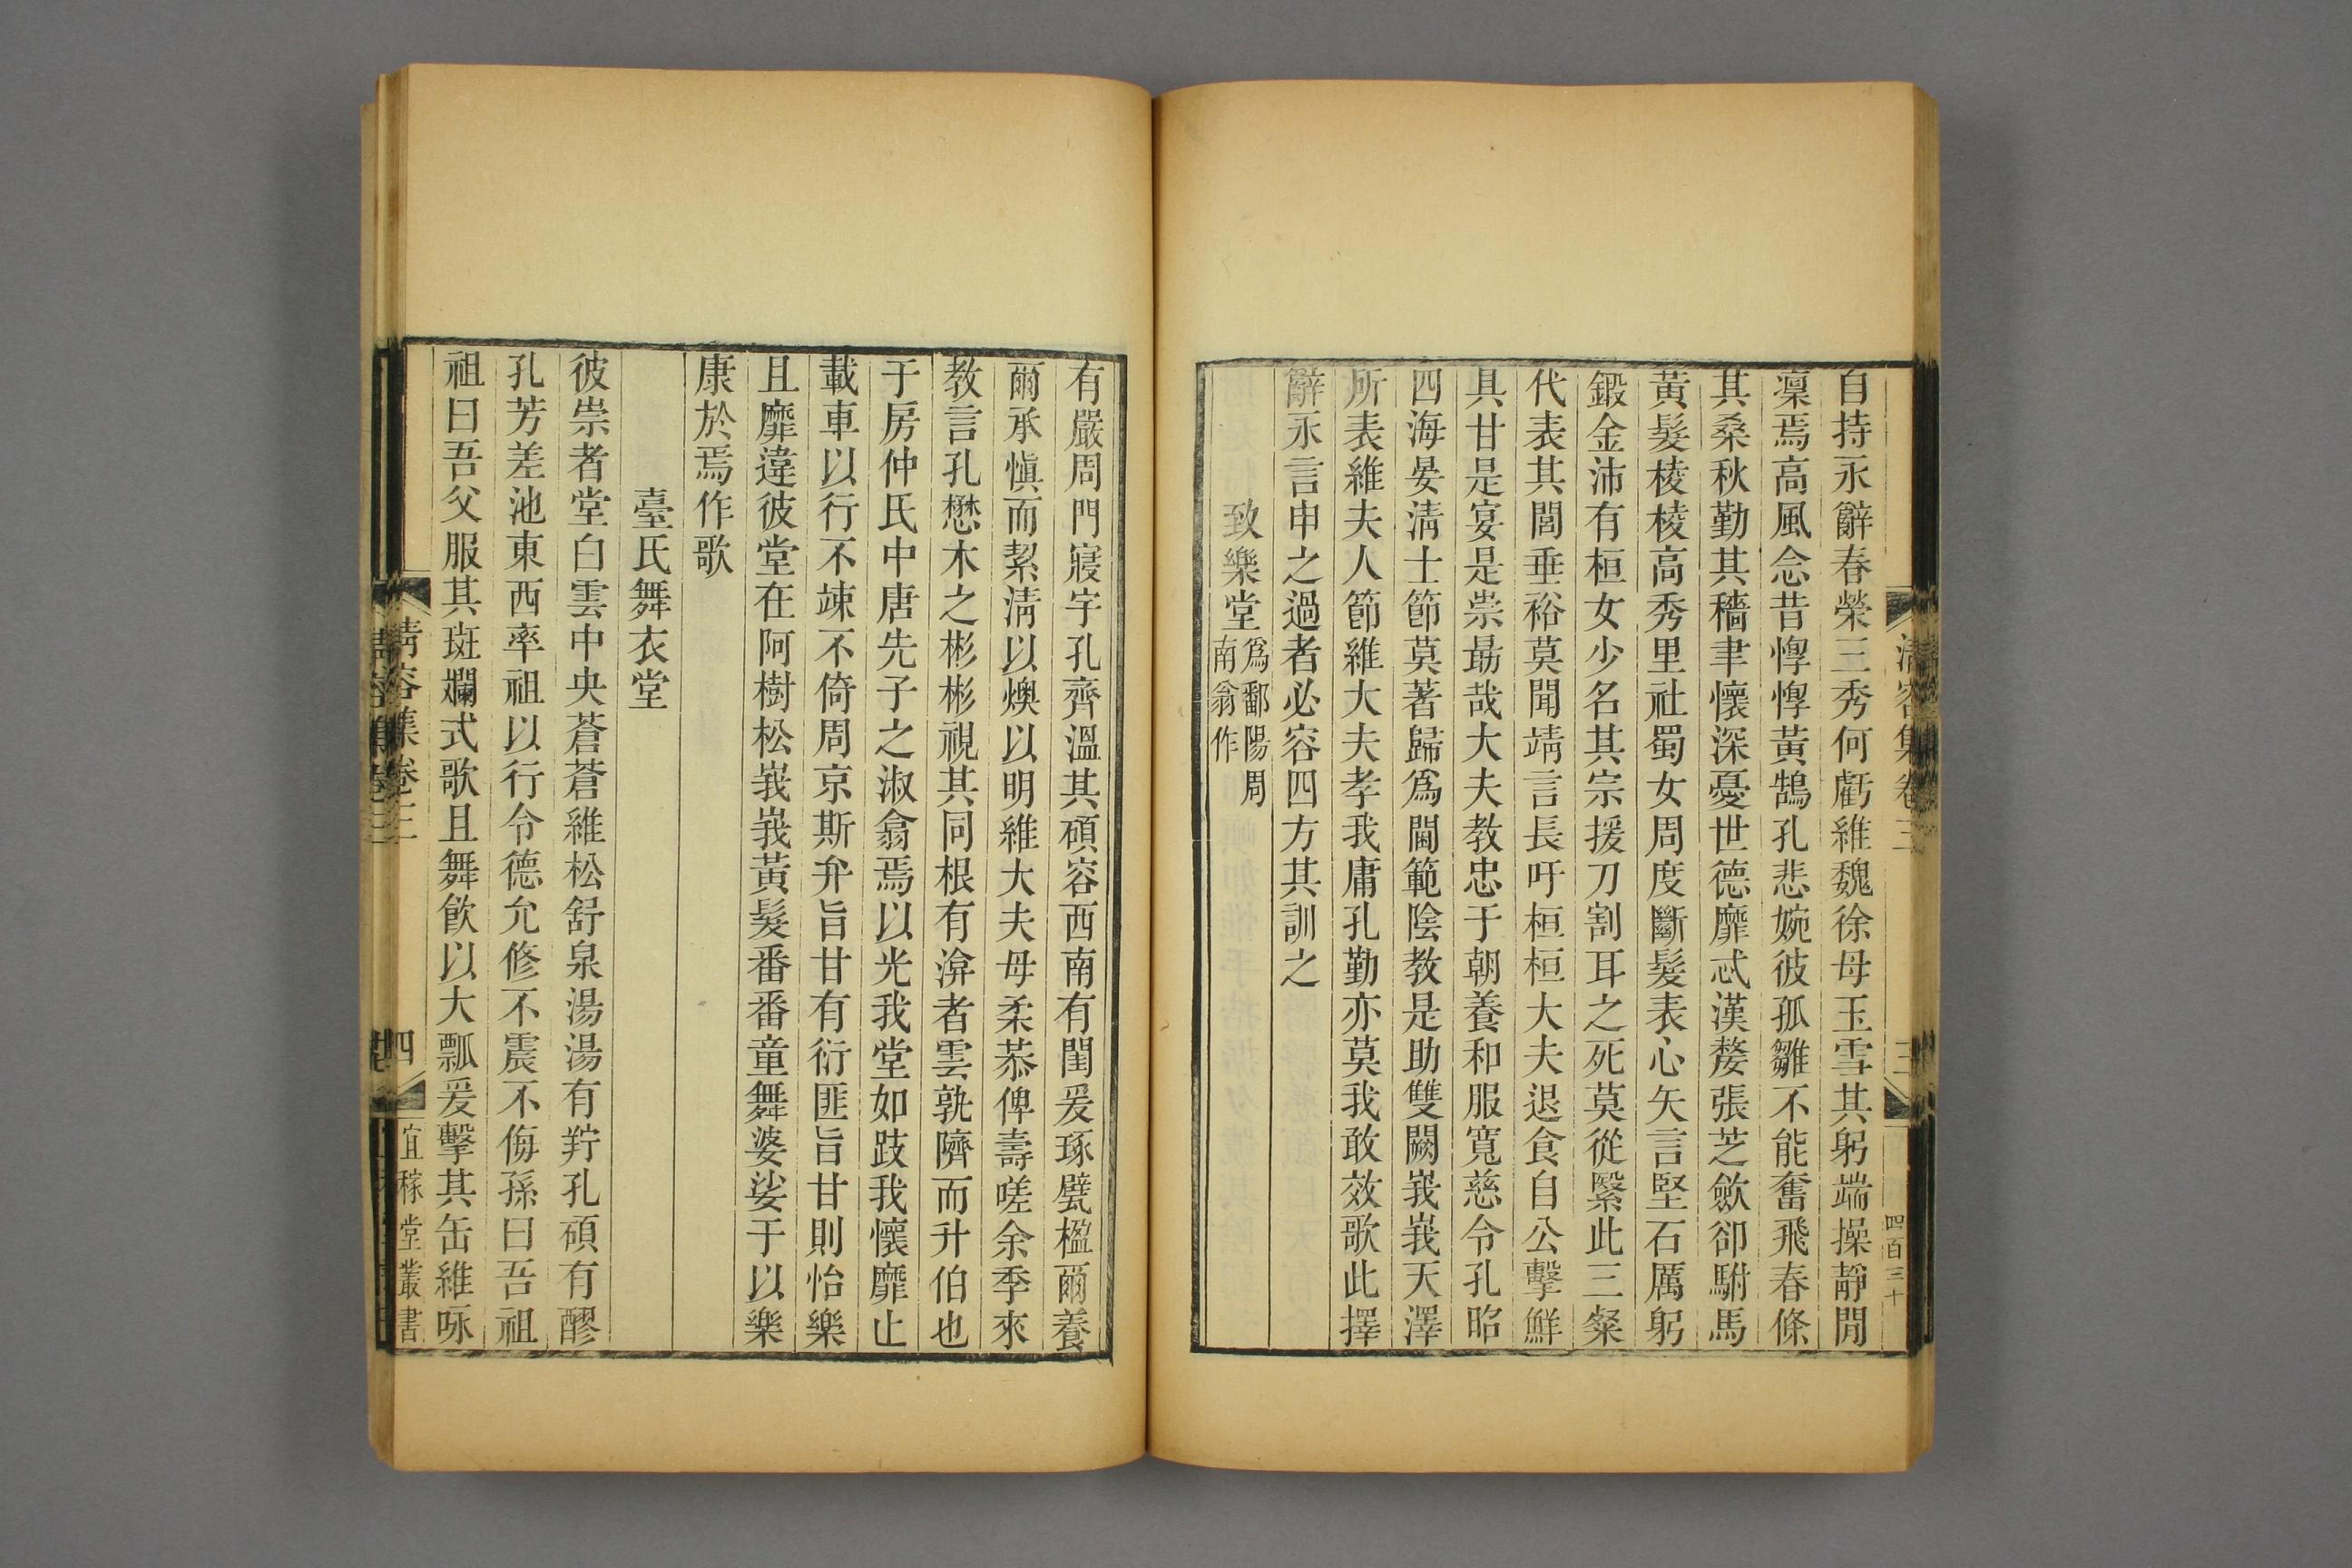 自持永辭春榮三秀何虧維魏徐母玉雪其躬端操靜閒
凜焉高風念昔惸惸黃鵠孔悲婉彼孤雛不能奮飛春條
其桑秋勤其穡聿懷深憂世德靡忒漢嫠張芝斂卻駙馬
黃髮棱棱高秀里社蜀女周度斷髮表心矢言堅石厲躬
鍛金沛有桓女少名其宗援刀割耳之死莫從繄此三粲
代表其閭垂裕莫聞靖言長吁桓桓大夫退食自公擊鮮
具甘是宴是崇勗哉大夫教忠于朝養和服寬慈令孔昭
四海晏淸士節莫著歸爲閫範陰教是助雙闕峩峩天澤
所表維夫人節維大夫孝我庸孔勤亦莫我敢效歌此擇
辭永言申之過者必容四方其訓之
致樂堂爲鄱陽周南翁作
有嚴周門寢宇孔齊溫其碩容西南有閨爰琢甓楹爾養
爾承愼而絜淸以燠以明維大夫母柔恭俾壽嗟余季來
教言孔懋木之彬彬視其同根有渰者雲孰隮而升伯也
于房仲氏中唐先子之淑翕焉以光我堂如跂我懷靡止
載車以行不竦不倚周京斯弁旨甘有衍匪旨甘則怡樂
且靡違彼堂在阿樹松峩峩黃髮番番童舞婆娑于以樂
康於焉作歌
臺氏舞衣堂
彼崇者堂白雲中央蒼蒼維松舒泉湯湯有羜孔碩有醪
孔芳差池東西率祖以行令德允修不震不侮孫曰吾祖
祖曰吾父服其斑斕式歌且舞飮以大瓢爰擊其缶維咏
淸容集卷三
三
四百三十
淸容集卷三
四
宜稼堂叢書